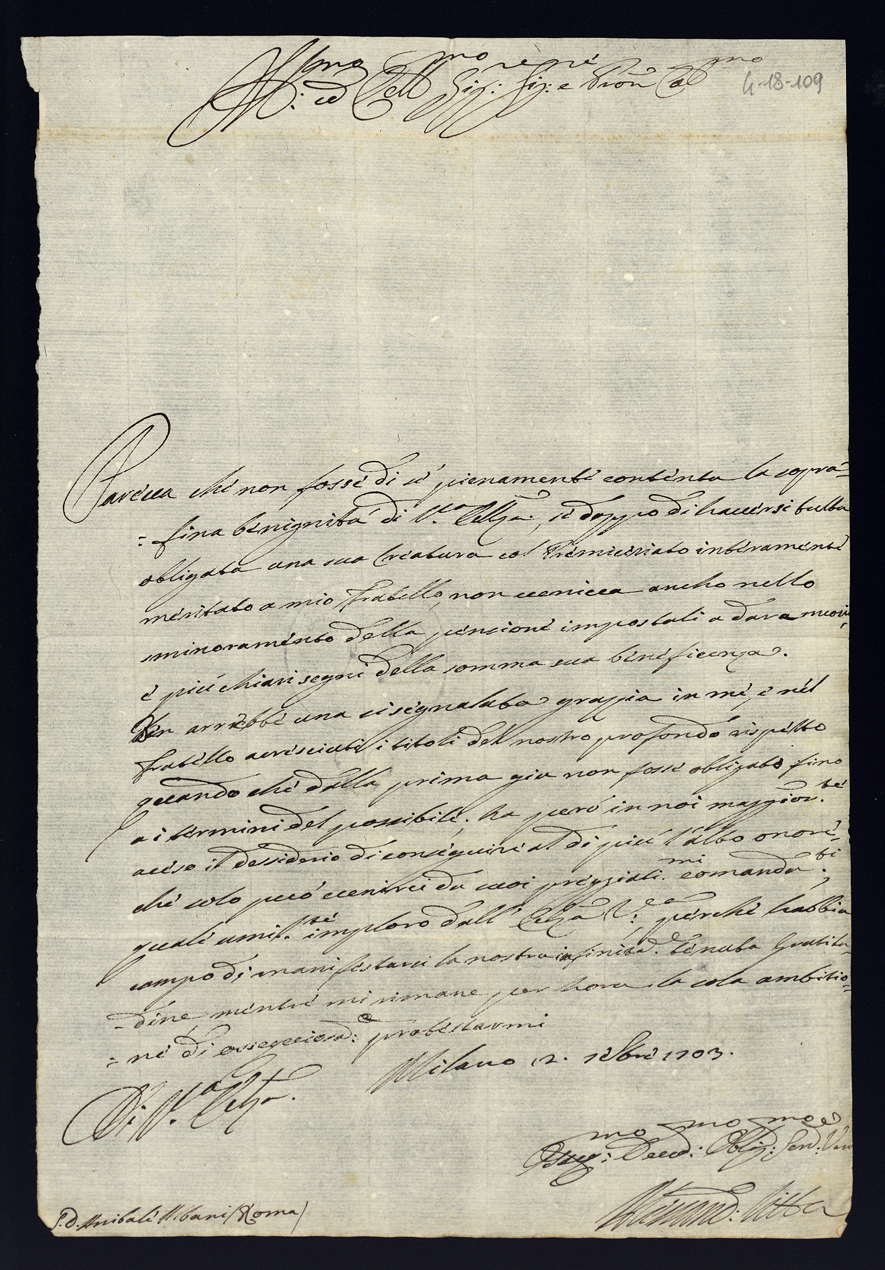 Ill:mo ed Ecc:mo Sig:re Sig:re e Pron Col:mo
4-18-109
Pareva che non fosse di sè pienamente contenta la sopra=
=fina benignità di V.ra Ecc:za, se doppo di haversi tutta
obligata una sua Creatura col Primiceriato interamente
meritato a mio Fratello, non veniva ancho nello
sminoramento della pensione impostali a dare nuovi,
e più chiari segni della somma sua beneficenza.
Ben avrebbe una sì segnalata grazzia in me, e nel
Fratello accresciuti i titoli del nostro profondo rispetto
quando che dalla prima già non fosse obligato fino
a i termini del possibile; ha però in noi maggior.te
acceso il dessiderio di conseguire di più l'alto onore,
che solo può venirci da suoi preggiati.mi comandi,
quali umil.te imploro dall' Ecc:za V.ra perchè habbia
campo di manifestarci la nostra infinita tenuta Gratitu=
=dine mentre mi rimane per hora la sola ambitio=
=ne di ossequiosa: protestarmi
Milano 12. 7bre 1703.
Di V.ra Ecc:za
Osseq:mo Devo:mo Oblig:mo Ser.re Vero
S. D. Anibale Albani /Roma/